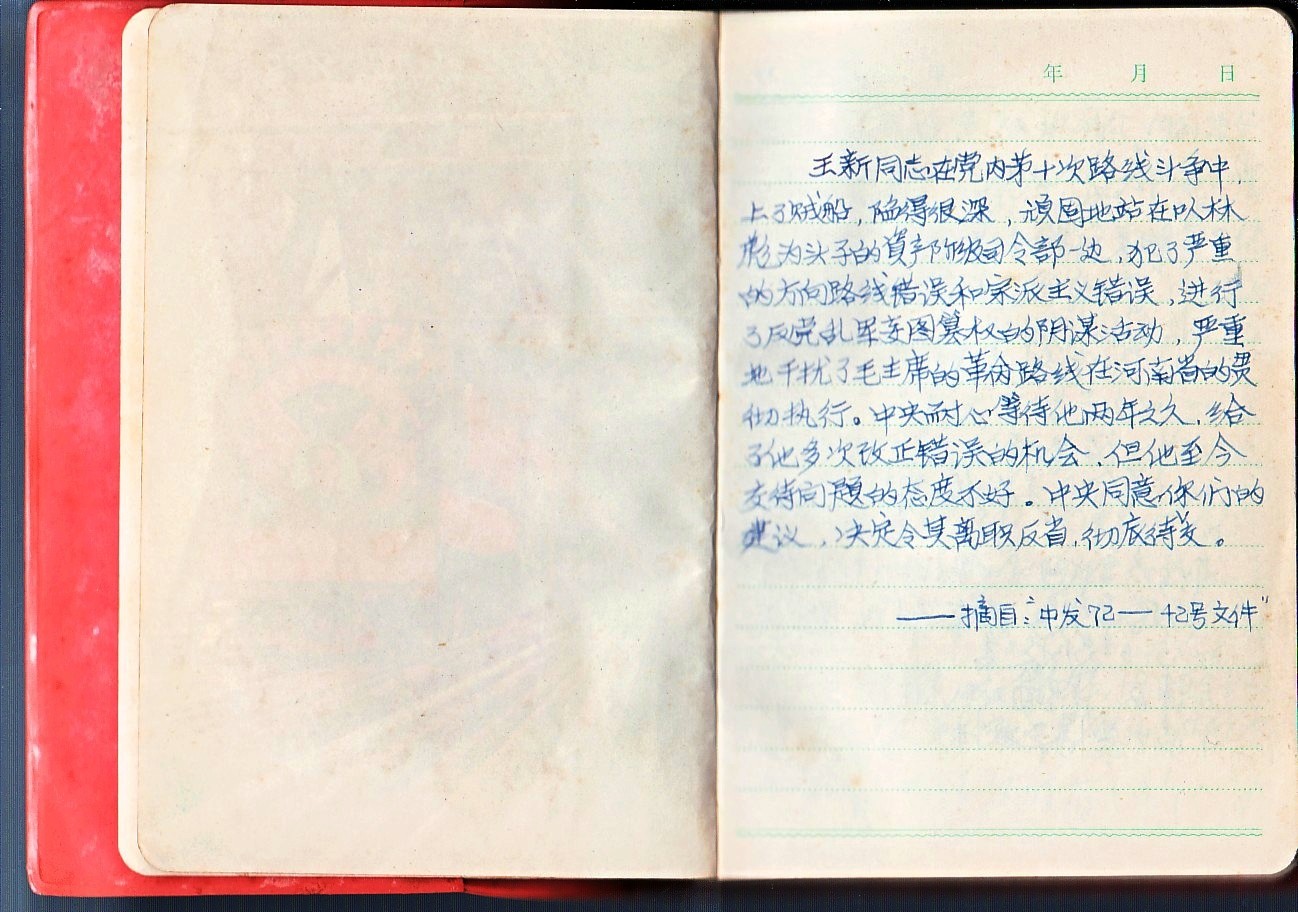 年 月 日
王新同志在党内第十次路线斗争中，
上了贼船，陷得很深，顽固地站在以林
彪为头子的資产阶级司令部一边，犯了严重
的方向路线错误和宗派主义错误，进行
了反党乱军妄图篡权的阴谋活动，严重
地干扰了毛主席的革命路线在河南省的贯
彻执行。中央耐心等待他两年之久，给
了他多次改正错误的机会，但他至今
交待问题的态度不好。中央同意你们的
建议，决定令其离职反省，彻底待交。
——摘自："中发72—42号文件"